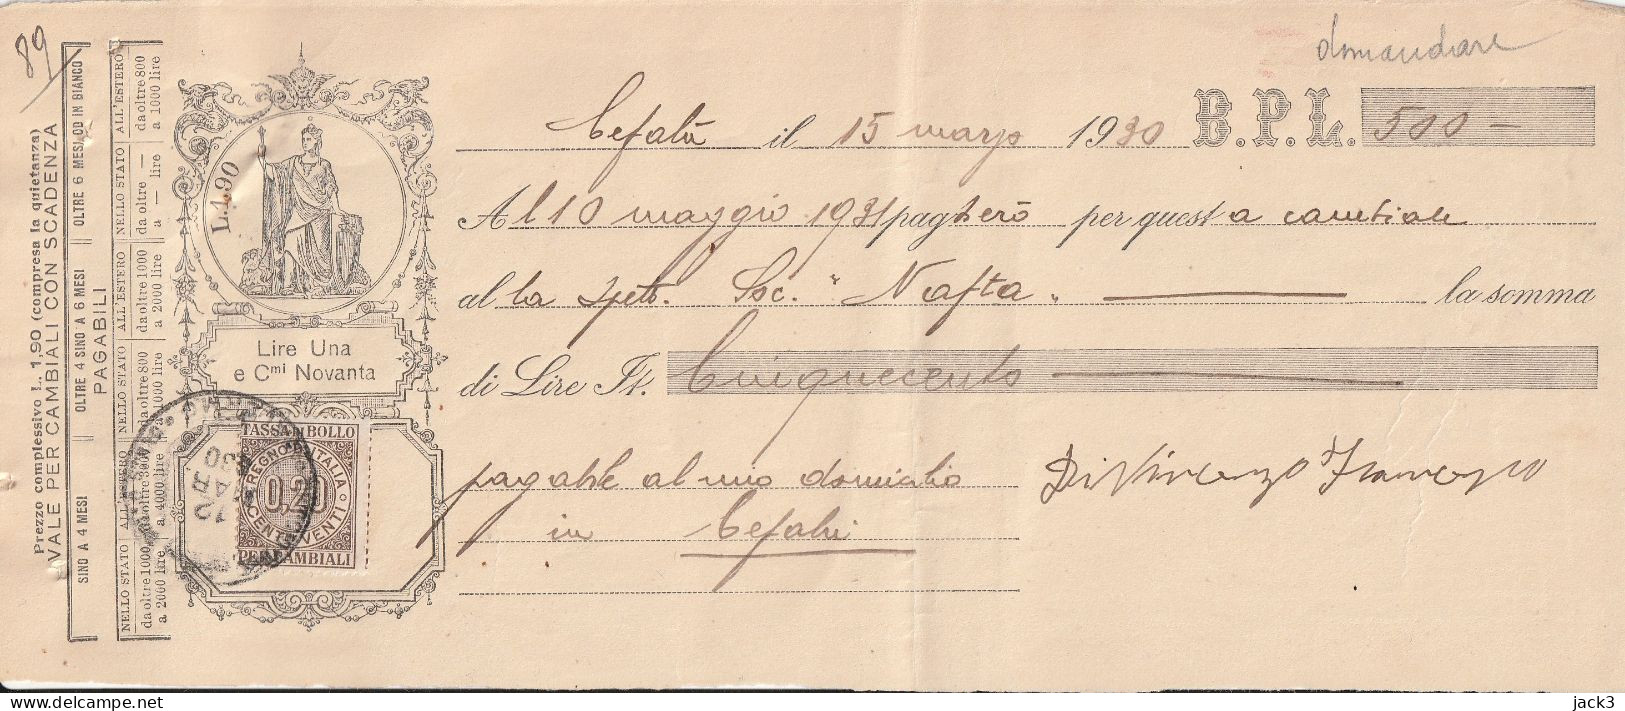 89
domandare
Prezzo complessivo L. 1,90 (compresa la quietanza)
VALE PER CAMBIALI CON SCADENZA
SINO A 4 MESI OLTRE 4 SINO A 6 MESI OLTRE 6 MESI OD IN BIANCO
PAGABILI
NELLO STATO ALL'ESTERO NELLO STATO ALL'ESTERO NELLO STATO ALL'ESTERO
da oltre 1000 da oltre 3000 da oltre 800 da oltre 1000 da oltre — da oltre 800
a 2000 lire a 4000 lire a 2000 lire a — lire a 1000 lire
L. 1,90
Lire Una
e Cmi Novanta
TASSA BOLLO
REGNO D'ITALIA
0,20
CENTESIMI VENTI
PER CAMBIALI
12
30
Cefalù il 15 marzo 1930 B.P.L. 500 —
Al 10 maggio 1931 pagherò per questa cambiale
alla Spett. Soc. "Nafta" la somma
di Lire It. Cinquecento
pagabile al mio domicilio
in Cefalù
Di Vincenzo Francesco
jack3